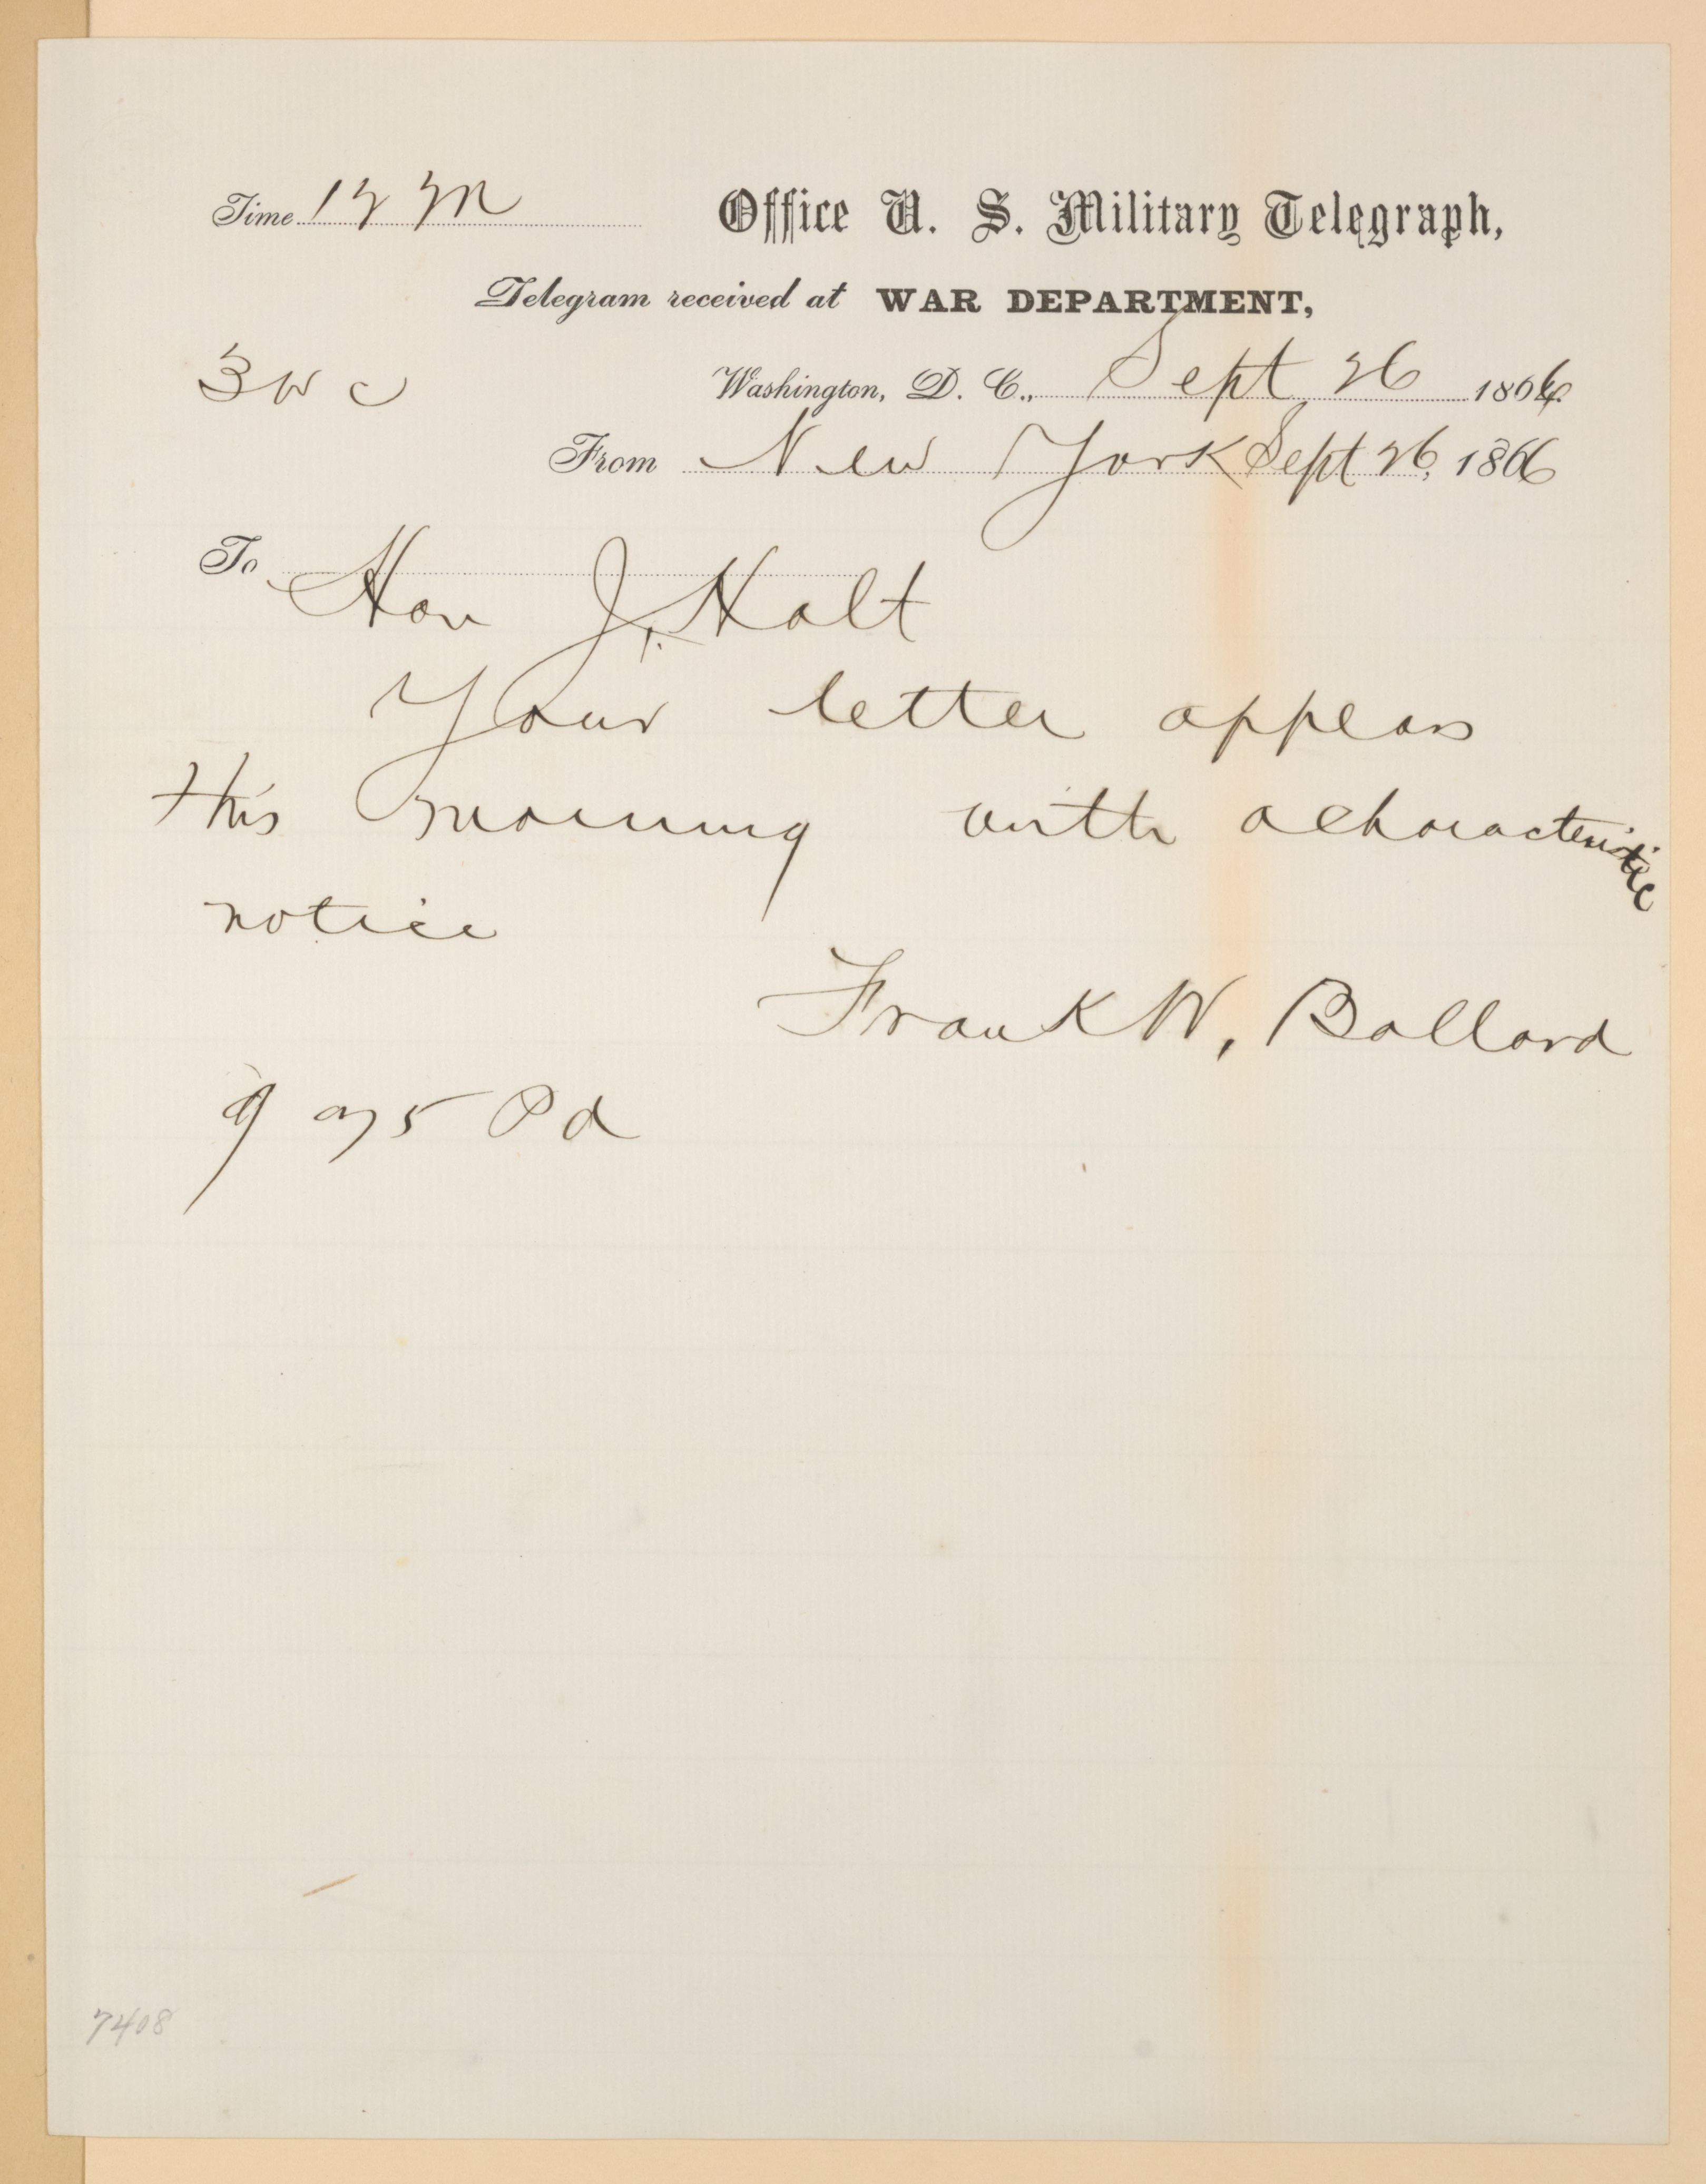 Time 12 M Office U. S. Military Telegraph,
Telegram received at WAR DEPARTMENT,
3 W C Washington, D. C., Sept 26 1866
From New York Sept 26, 1866
To Hon J. Holt
Your letter appears
this morning with a characteristic
notice
Frank W. Ballard
9 975 Pd
7408